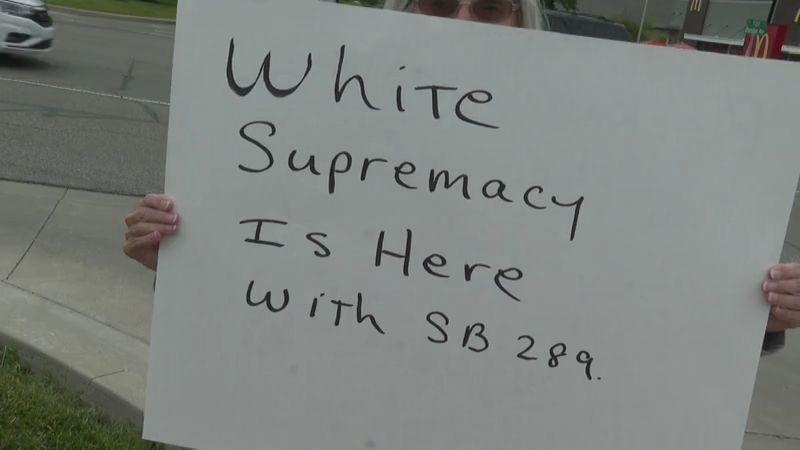 White
Supremacy
Is Here
With SB 289.